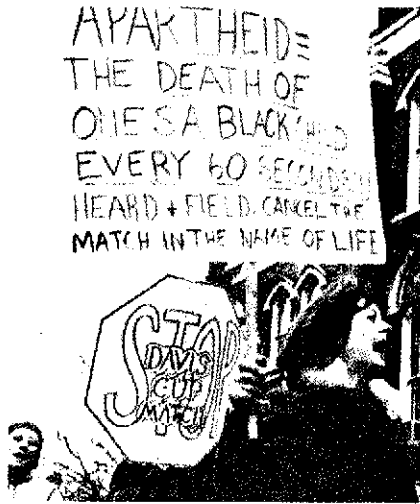 APARTHEID=
THE DEATH OF
ONE SA BLACK CHILD
EVERY 60 SECONDS
HEARD + FIELD. CANCEL THE
MATCH IN THE NAME OF LIFE
STOP
DAVIS
CUP
MATCH